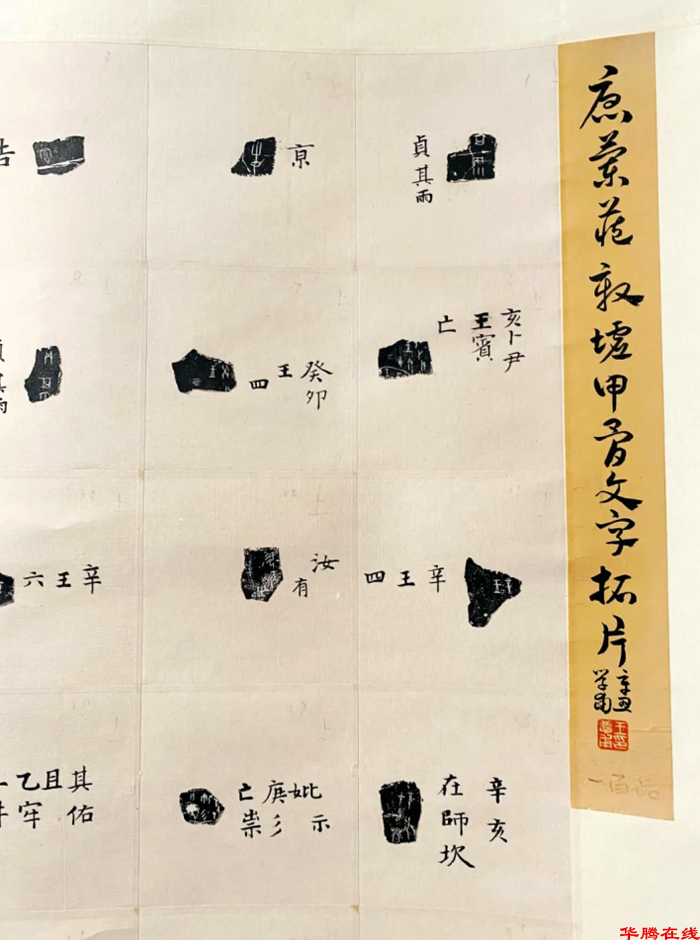 殷墟甲骨文字拓片
一百品
貞其雨
亰
告
亥卜尹
王賓
亡
癸卯
王
四
貞其雨
辛
王
四
汝
有
辛
王
六
辛亥
在師坎
妣示
庚彡
亡祟
其佑
且
乙牢
华腾在线